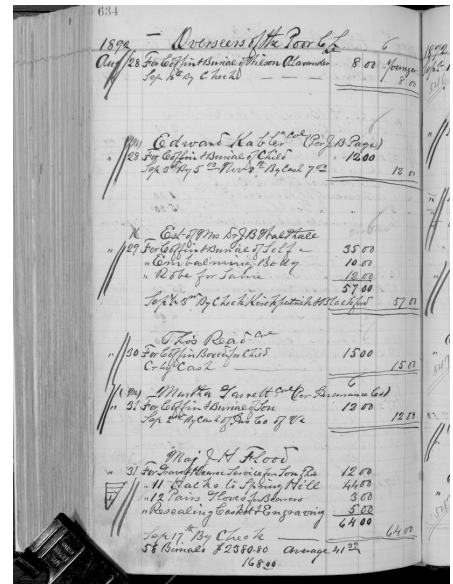 634
1892 — Overseers of the Poor C L 6
Aug 28 For Coffin + Burial of Wilson Clavender 8 00 Younger
Sep By Check — — — 8 00
(M) Edward Kabler Col (Per J B Page)
" 28 For Coffin + Burial of Child 12 00
Sep By 5 00 Nov By Cash 7 00 12 00
Est of Mrs Dr J B Walthall
" 29 For Coffin + Burial of Self 35 00
" Embalming Body 10 00
" Robe for Same 12 00
57 00
Sep By Check Kirkpatrick + Blackford 57 00
Thos Read Col
" 30 For Coffin Box for Child 15 00
Cr By Cash 15 00
(M) Martha Garrett Col (Per Insurance Co) 6
" 31 For Coffin + Burial of Son 12 00
Sep By Cash of Ins Co of Va 12 00
Maj J H Flood
" 31 For Hearse Service for
" 11 Hacks to Spring Hill 44 00
" 12 Pairs Gloves for Bearers 3 00
" Resealing Casket + Engraving 5 00
64 00
Sep 17th By Check — 64 00
58 Burials $2380.80 average 41
168 00